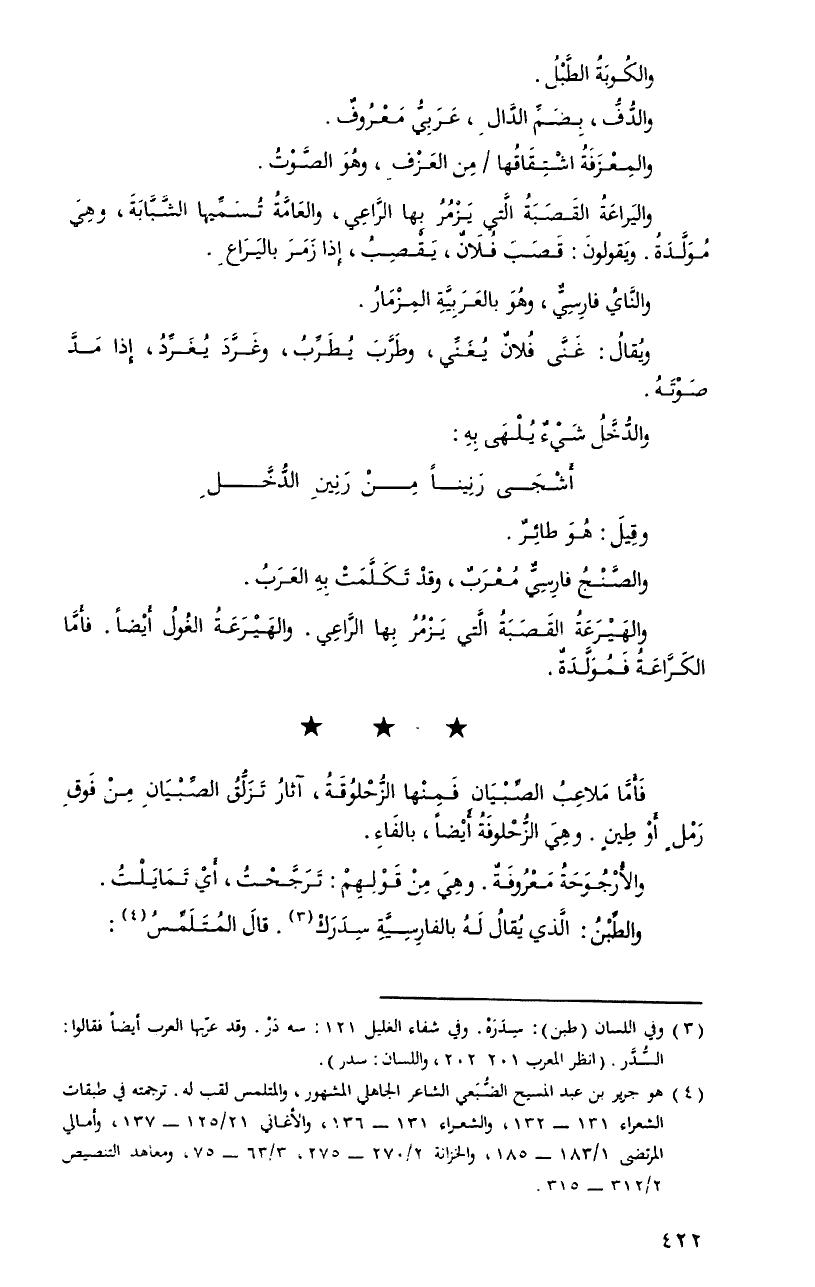 والكُوبَةُ الطَّبْلُ .
والدُّفُّ ، بِضَمِّ الدَّالِ ، عَرَبِيُّ مَعْرُوفٌ .
والمِعْزَفَةُ اشْتِقَاقُها / مِن العَزْفِ ، وهُوَ الصَّوْتُ .
واليَراعَةُ القَصَبَةُ الَّتي يَزْمُرُ بِها الرَّاعِي ، والعَامَّةُ تُسَمِّيها الشَّبَّابَةَ ، وهِيَ
مُوَلَّدَةُ . ويَقولونَ : قَصَبَ فُلَانٌ ، يَقْصِبُ ، إذا زَمَرَ باليَراعِ .
والنَّايُ فارِسِيٌّ ، وهُوَ بالعَرَبِيَّةِ المِزْمَارُ .
ويُقالُ : غَنَّى فُلانٌ يُغَنِّي ، وطَرَّبَ يُطَرِّبُ ، وغَرَّدَ يُغَرِّدُ ، إذا مَدَّ
صَوْتَهُ .
والدُّخَّلُ شَيْءٌ يُلْهَى بِهِ :
أَشْجَى رَنِيناً مِنْ رَنِينِ الدُّخَّلِ
وقِيلَ : هُوَ طائِرٌ .
والصَّنْجُ فارِسِيٌّ مُعْرَبٌ ، وقدْ تَكَلَّمَتْ بِهِ العَرَبُ .
والهَيْرَعَةُ القَصَبَةُ الَّتي يَزْمُرُ بها الرَّاعِي . والهَيْرَعَةُ الغُولُ أَيْضاً . فأَمَّا
الكَرَّاعَةُ فَمُوَلَّدَةٌ .
★ ★ ★
فَأَمَّا مَلاعِبُ الصِّبْيَانِ فَمِنْها الزُّحْلوُقَةُ ، آثارُ تَزَلُّقِ الصِّبْيَانِ مِنْ فَوقِ
رَمْلٍ أَوْ طِينٍ . وهِيَ الزُّحْلوفَةُ أَيْضاً ، بالفَاءِ .
والأُرْجُوحَةُ مَعْرُوفَةٌ . وهِيَ مِنْ قَوْلِهِمْ : تَرَجَّحْتُ ، أَيْ تَمَايَلْتُ .
والطِّبْنُ : الَّذي يُقالُ لَهُ بالفارِسِيَّةِ سِدَرَكْ(٣) . قالَ المُتَلَمِّسُ(٤) :
(٣) وفي اللسان (طبن) : سِدَرَهْ . وفي شفاء الغليل ١٢١ : سه دَرْ . وقد عرّبها العرب أيضاً فقالوا :
السُّدَّر . (انظر المعرب ٢٠١ ٢٠٢ ، واللسان : سدر) .
(٤) هو جرير بن عبد المسيح الضُّبَعي الشاعر الجاهلي المشهور ، والمتلمس لقب له . ترجمته في طبقات
الشعراء ١٣١ – ١٣٢ ، والشعراء ١٣١ – ١٣٦ ، والأغاني ١٢٥/٢١ – ١٣٧ ، وأمالي
المرتضى ١٨٣/١ – ١٨٥ ، والخزانة ٢٧٠/٢ – ٢٧٥ ، ٦٣/٣ – ٧٥ ، ومعاهد التنصيص
٣١٢/٢ – ٣١٥ .
٤٢٢